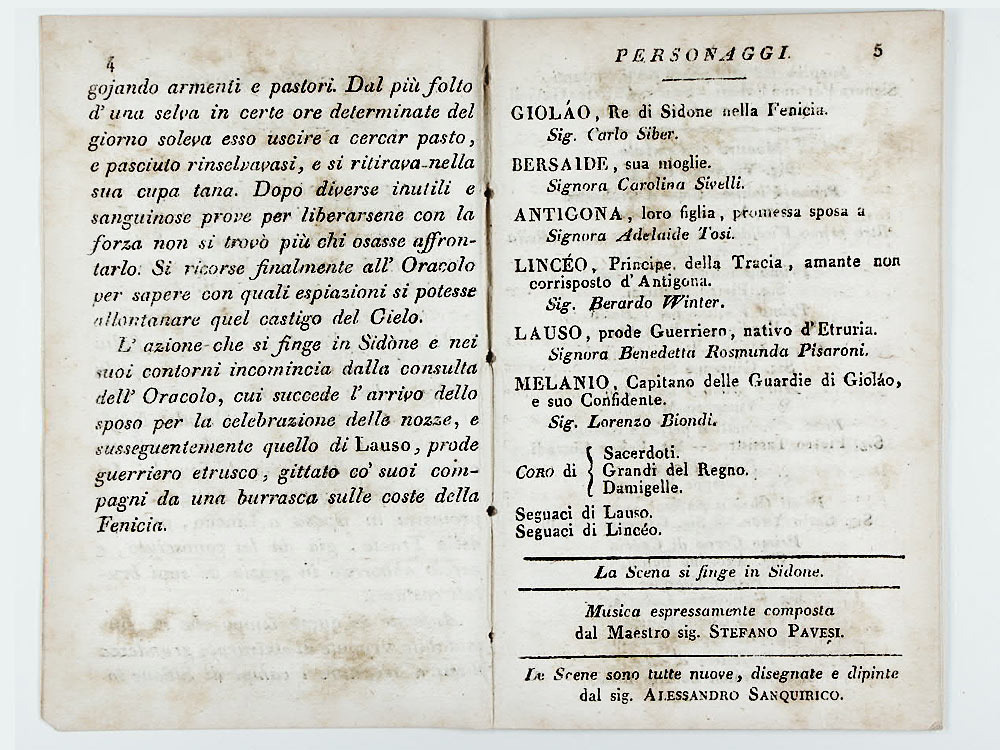 4
gojando armenti e pastori. Dal più folto
d' una selva in certe ore determinate del
giorno soleva esso uscire a cercar pasto,
e pasciuto rinselvavasi, e si ritirava nella
sua cupa tana. Dopo diverse inutili e
sanguinose prove per liberarsene con la
forza non si trovò più chi osasse affron-
tarlo. Si ricorse finalmente all' Oracolo
per sapere con quali espiazioni si potesse
allontanare quel castigo del Cielo.
L' azione che si finge in Sidòne e nei
suoi contorni incomincia dalla consulta
dell' Oracolo, cui succede l' arrivo dello
sposo per la celebrazione delle nozze, e
susseguentemente quello di Lauso, prode
guerriero etrusco, gittato co' suoi com-
pagni da una burrasca sulle coste della
Fenicia.
PERSONAGGI. 5
GIOLÁO, Re di Sidone nella Fenicia.
Sig. Carlo Siber.
BERSAIDE, sua moglie.
Signora Carolina Sivelli.
ANTIGONA, loro figlia, promessa sposa a
Signora Adelaide Tosi.
LINCÉO, Principe della Tracia, amante non
corrisposto d' Antigona.
Sig. Berardo Winter.
LAUSO, prode Guerriero, nativo d' Etruria.
Signora Benedetta Rosmunda Pisaroni.
MELANIO, Capitano delle Guardie di Gioláo,
e suo Confidente.
Sig. Lorenzo Biondi.
Sacerdoti.
CORO di { Grandi del Regno.
Damigelle.
Seguaci di Lauso.
Seguaci di Lincéo.
La Scena si finge in Sidone.
Musica espressamente composta
dal Maestro sig. STEFANO PAVESI.
Le Scene sono tutte nuove, disegnate e dipinte
dal sig. ALESSANDRO SANQUIRICO.